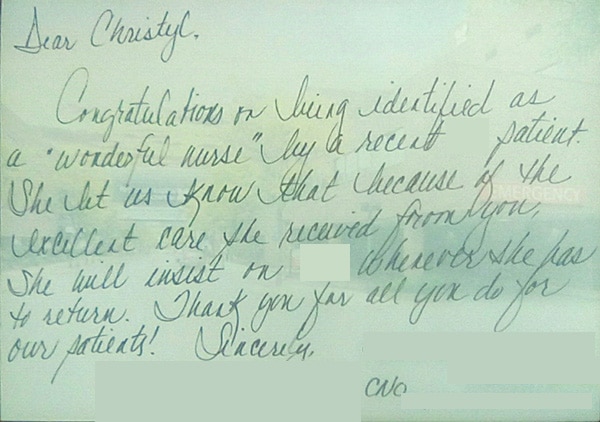 Dear Christy C.
Congratulations on being identified as
a "wonderful nurse" by a recent patient.
She let us know that because of the
EMERGENCY
excellent care she received from you,
She will insist on whenever she has
to return. Thank you for all you do for
our patients! Sincerely,
CNO